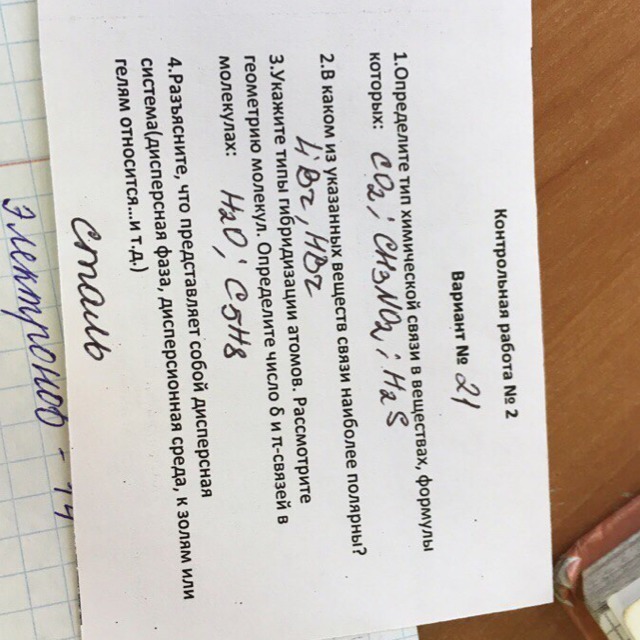 Контрольная работа № 2
Вариант № 21
1.Определите тип химической связи в веществах, формулы
которых: CO2; CH3NO2; H2S
2.В каком из указанных веществ связи наиболее полярны?
LiBr, HBr
3.Укажите типы гибридизации атомов. Рассмотрите
геометрию молекул. Определите число δ и π-связей в
молекулах: H2O; C5H8
4.Разъясните, что представляет собой дисперсная
система(дисперсная фаза, дисперсионная среда, к золям или
гелям относится...и т.д.)
сталь
Электронов - 14